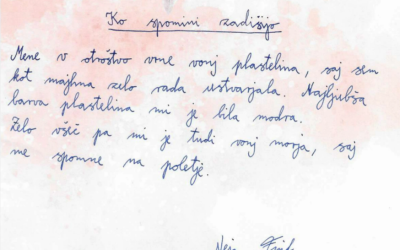 Ko spomini zadišijo
Mene v otroštvo vrne vonj plastelina, saj sem
kot majhna zelo rada ustvarjala. Najljubša
barva plastelina mi je bila modra.
Zelo všeč pa mi je tudi vonj morja, saj
me spomne na poletje.